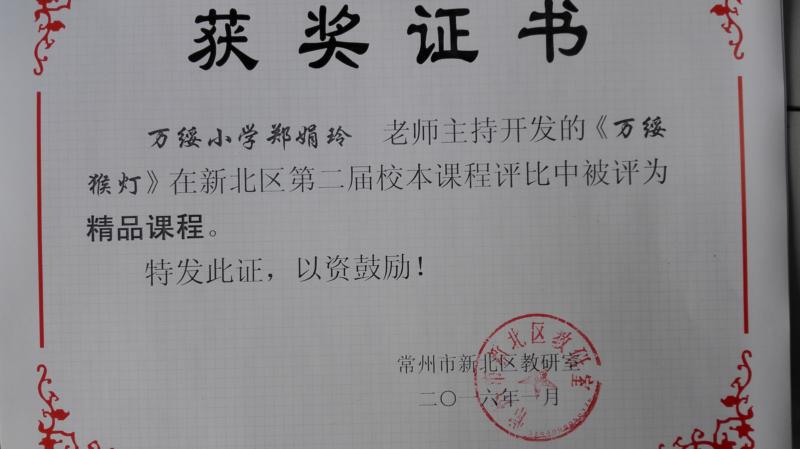 获奖证书
万绥小学郑娟玲 老师主持开发的《万绥
猴灯》在新北区第二届校本课程评比中被评为
精品课程。
特发此证，以资鼓励！
常州市新北区教研室
二〇一六年一月
常州市新北区教研室